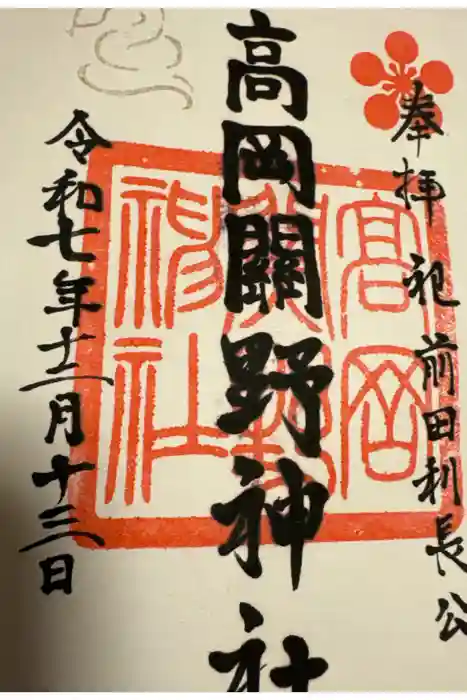 奉拝 祀 前田利長公
高岡關野神社
令和七年十二月十三日
高岡
關野
神社